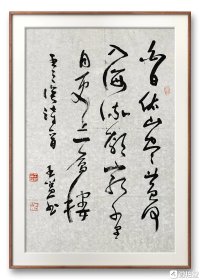 白日依山尽黄河
入海流欲穷千里
目更上一层楼
王之涣诗